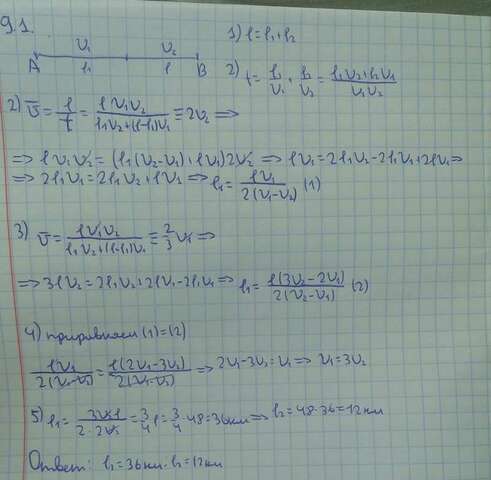 9.1.
V₁ V₂ 1) l = l₁ + l₂
A l₁ l B 2) t = l₁/V₁ + l₂/V₂ = (l₁V₂ + l₂V₁)/(V₁V₂)
2) V̅ = l/t = lV₁V₂/(l₁V₂+(l-l₁)V₁) ≡ 2V₂ ⇒
⇒ lV₁V₂ = (l₁(V₂-V₁)+lV₁)2V₂ ⇒ lV₁ = 2l₁V₂ - 2l₁V₁ + 2lV₁ ⇒
⇒ 2l₁V₁ = 2l₁V₂ + lV₂ ⇒ l₁ = lV₁/(2(V₁-V₂)) (1)
3) V̅ = lV₁V₂/(l₁V₂+(l-l₁)V₁) ≡ 2/3 V₁ ⇒
⇒ 3lV₂ = 2l₁V₂ + 2lV₁ - 2l₁V₁ ⇒ l₁ = l(3V₂-2V₁)/(2(V₂-V₁)) (2)
4) приравняем (1)=(2)
lV₁/(2(V₁-V₂)) = l(2V₁-3V₂)/(2(V₁-V₂)) ⇒ 2V₁-3V₂=V₁ ⇒ V₁=3V₂
5) l₁ = 3V₂l/(2·2V₂) = 3/4 l = 3/4 · 48 = 36км ⇒ l₂ = 48-36=12км
Ответ: l₁=36км. l₂=12км